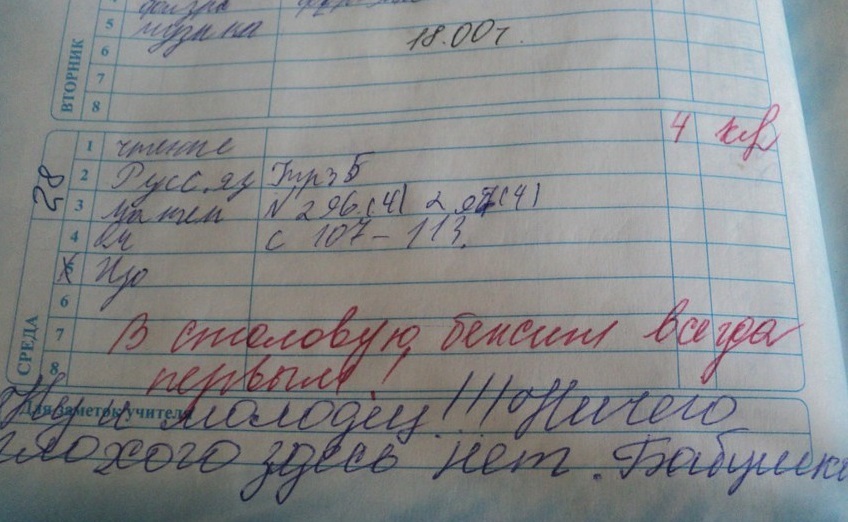 5 музыка
18.00 г.
6
7
8
ВТОРНИК
28
1 чтение 4
2 Русс. яз Упр 3 Б
3 матем № 296 (4) 297 (4)
4 с 107 - 113.
5 Изо
6
7 В столовую бежит всегда
8 первым!
СРЕДА
Для заметок учителя
Ну и молодец!!! Ничего
плохого здесь нет. Бабушка